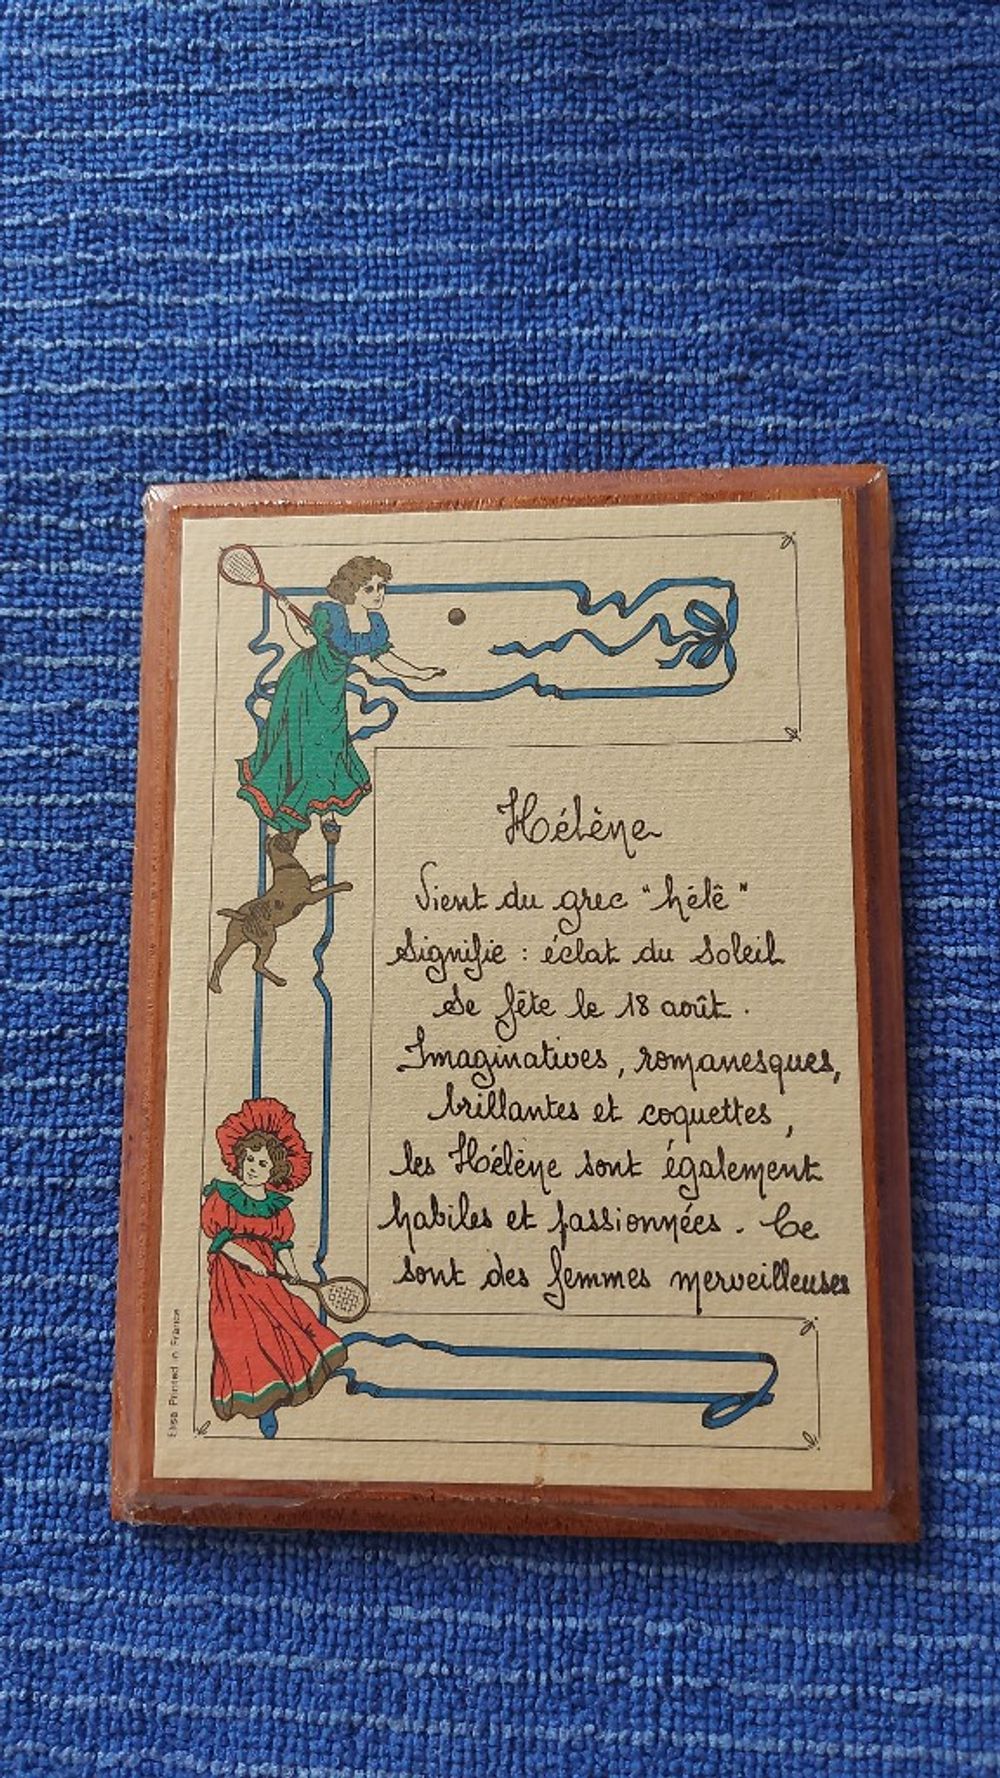 Hélène
Vient du grec "hélê"
Signifie : éclat du Soleil
Se fête le 18 août.
Imaginatives, romanesques,
brillantes et coquettes,
les Hélène sont également
habiles et passionnées. Ce
sont des femmes merveilleuses
Elisa Printed in France